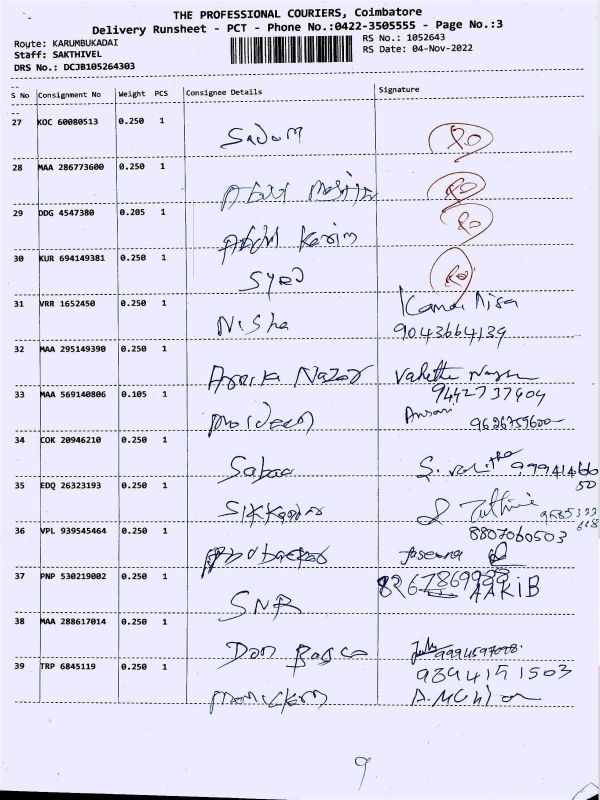 THE PROFESSIONAL COURIERS, Coimbatore
Delivery Runsheet - PCT - Phone No.:0422-3505555 - Page No.:3
Route: KARUMBUKADAI
RS No.: 1052643
Staff: SAKTHIVEL
RS Date: 04-Nov-2022
DRS No.: DCJB105264303
S No Consignment No Weight PCS Consignee Details Signature
27 KOC 60080513 0.250 1
Sadam
28 MAA 286773600 0.250 1
29 DDG 4547380 0.205 1
Abdul Karim
30 KUR 694149381 0.250 1
Syed
31 VRR 1652450 0.250 1
Nisha 9043664139
32 MAA 295149390 0.250 1
Nazar
33 MAA 569140806 0.105 1 9442737609
Ansari
Moideen 9626759600
34 COK 20946210 0.250 1
Sabaa
35 EDQ 26323193 0.250 1
Sikkandar
36 VPL 939545464 0.250 1 8807060503
37 PNP 530219002 0.250 1
SNR AAKIB
38 MAA 288617014 0.250 1
Don Bosco
39 TRP 6845119 0.250 1 9894151503
Manickam
9